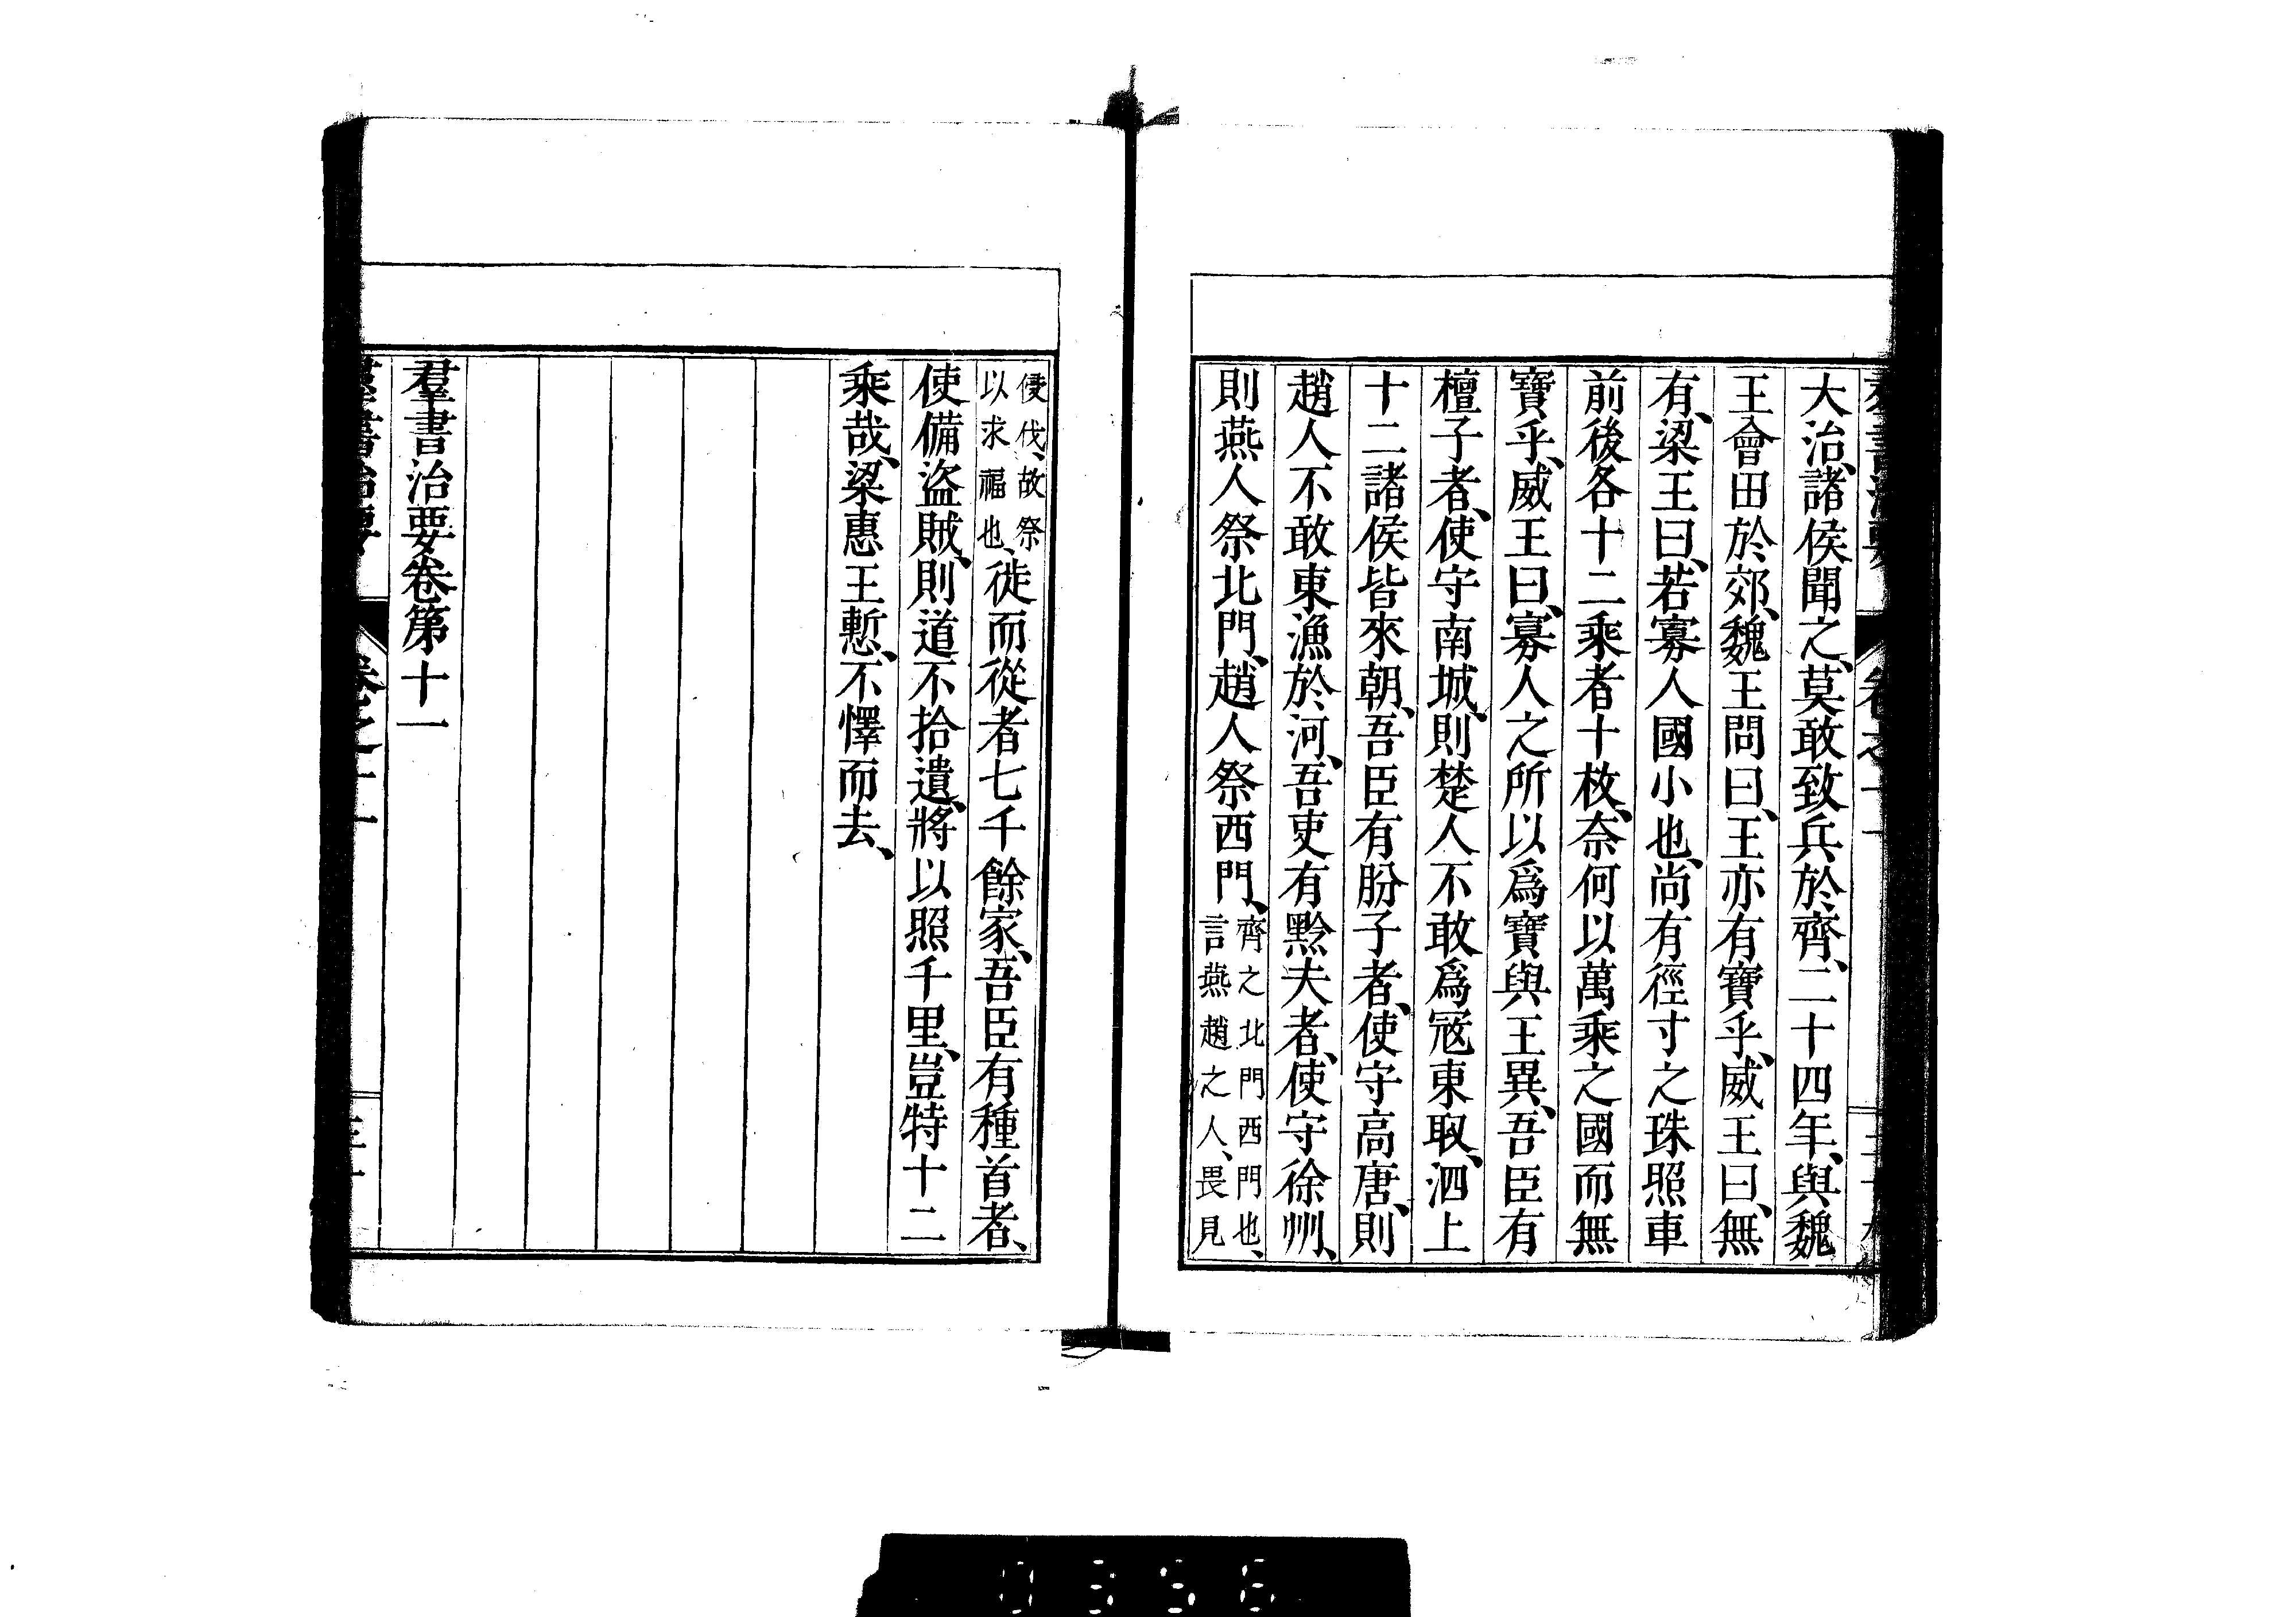 大治、諸侯聞之、莫敢致兵於齊、二十四年、與魏
王會田於郊、魏王問曰、王亦有寶乎、威王曰、無
有、梁王曰、若寡人國小也、尚有徑寸之珠照車
前後各十二乘者十枚、奈何以萬乘之國而無
寶乎、威王曰、寡人之所以爲寶與王異、吾臣有
檀子者、使守南城、則楚人不敢爲寇東取、泗上
十二諸侯皆來朝、吾臣有肦子者、使守高唐、則
趙人不敢東漁於河、吾吏有黔夫者、使守徐州、
則燕人祭北門、趙人祭西門、齊之北門西門也、言燕趙之人、畏見
侵伐、故祭以求福也、徙而從者七千餘家、吾臣有種首者、
使備盜賊、則道不拾遺、將以照千里、豈特十二
乘哉、梁惠王慙、不懌而去、
羣書治要卷第十一
羣書治要 卷之十一
0356